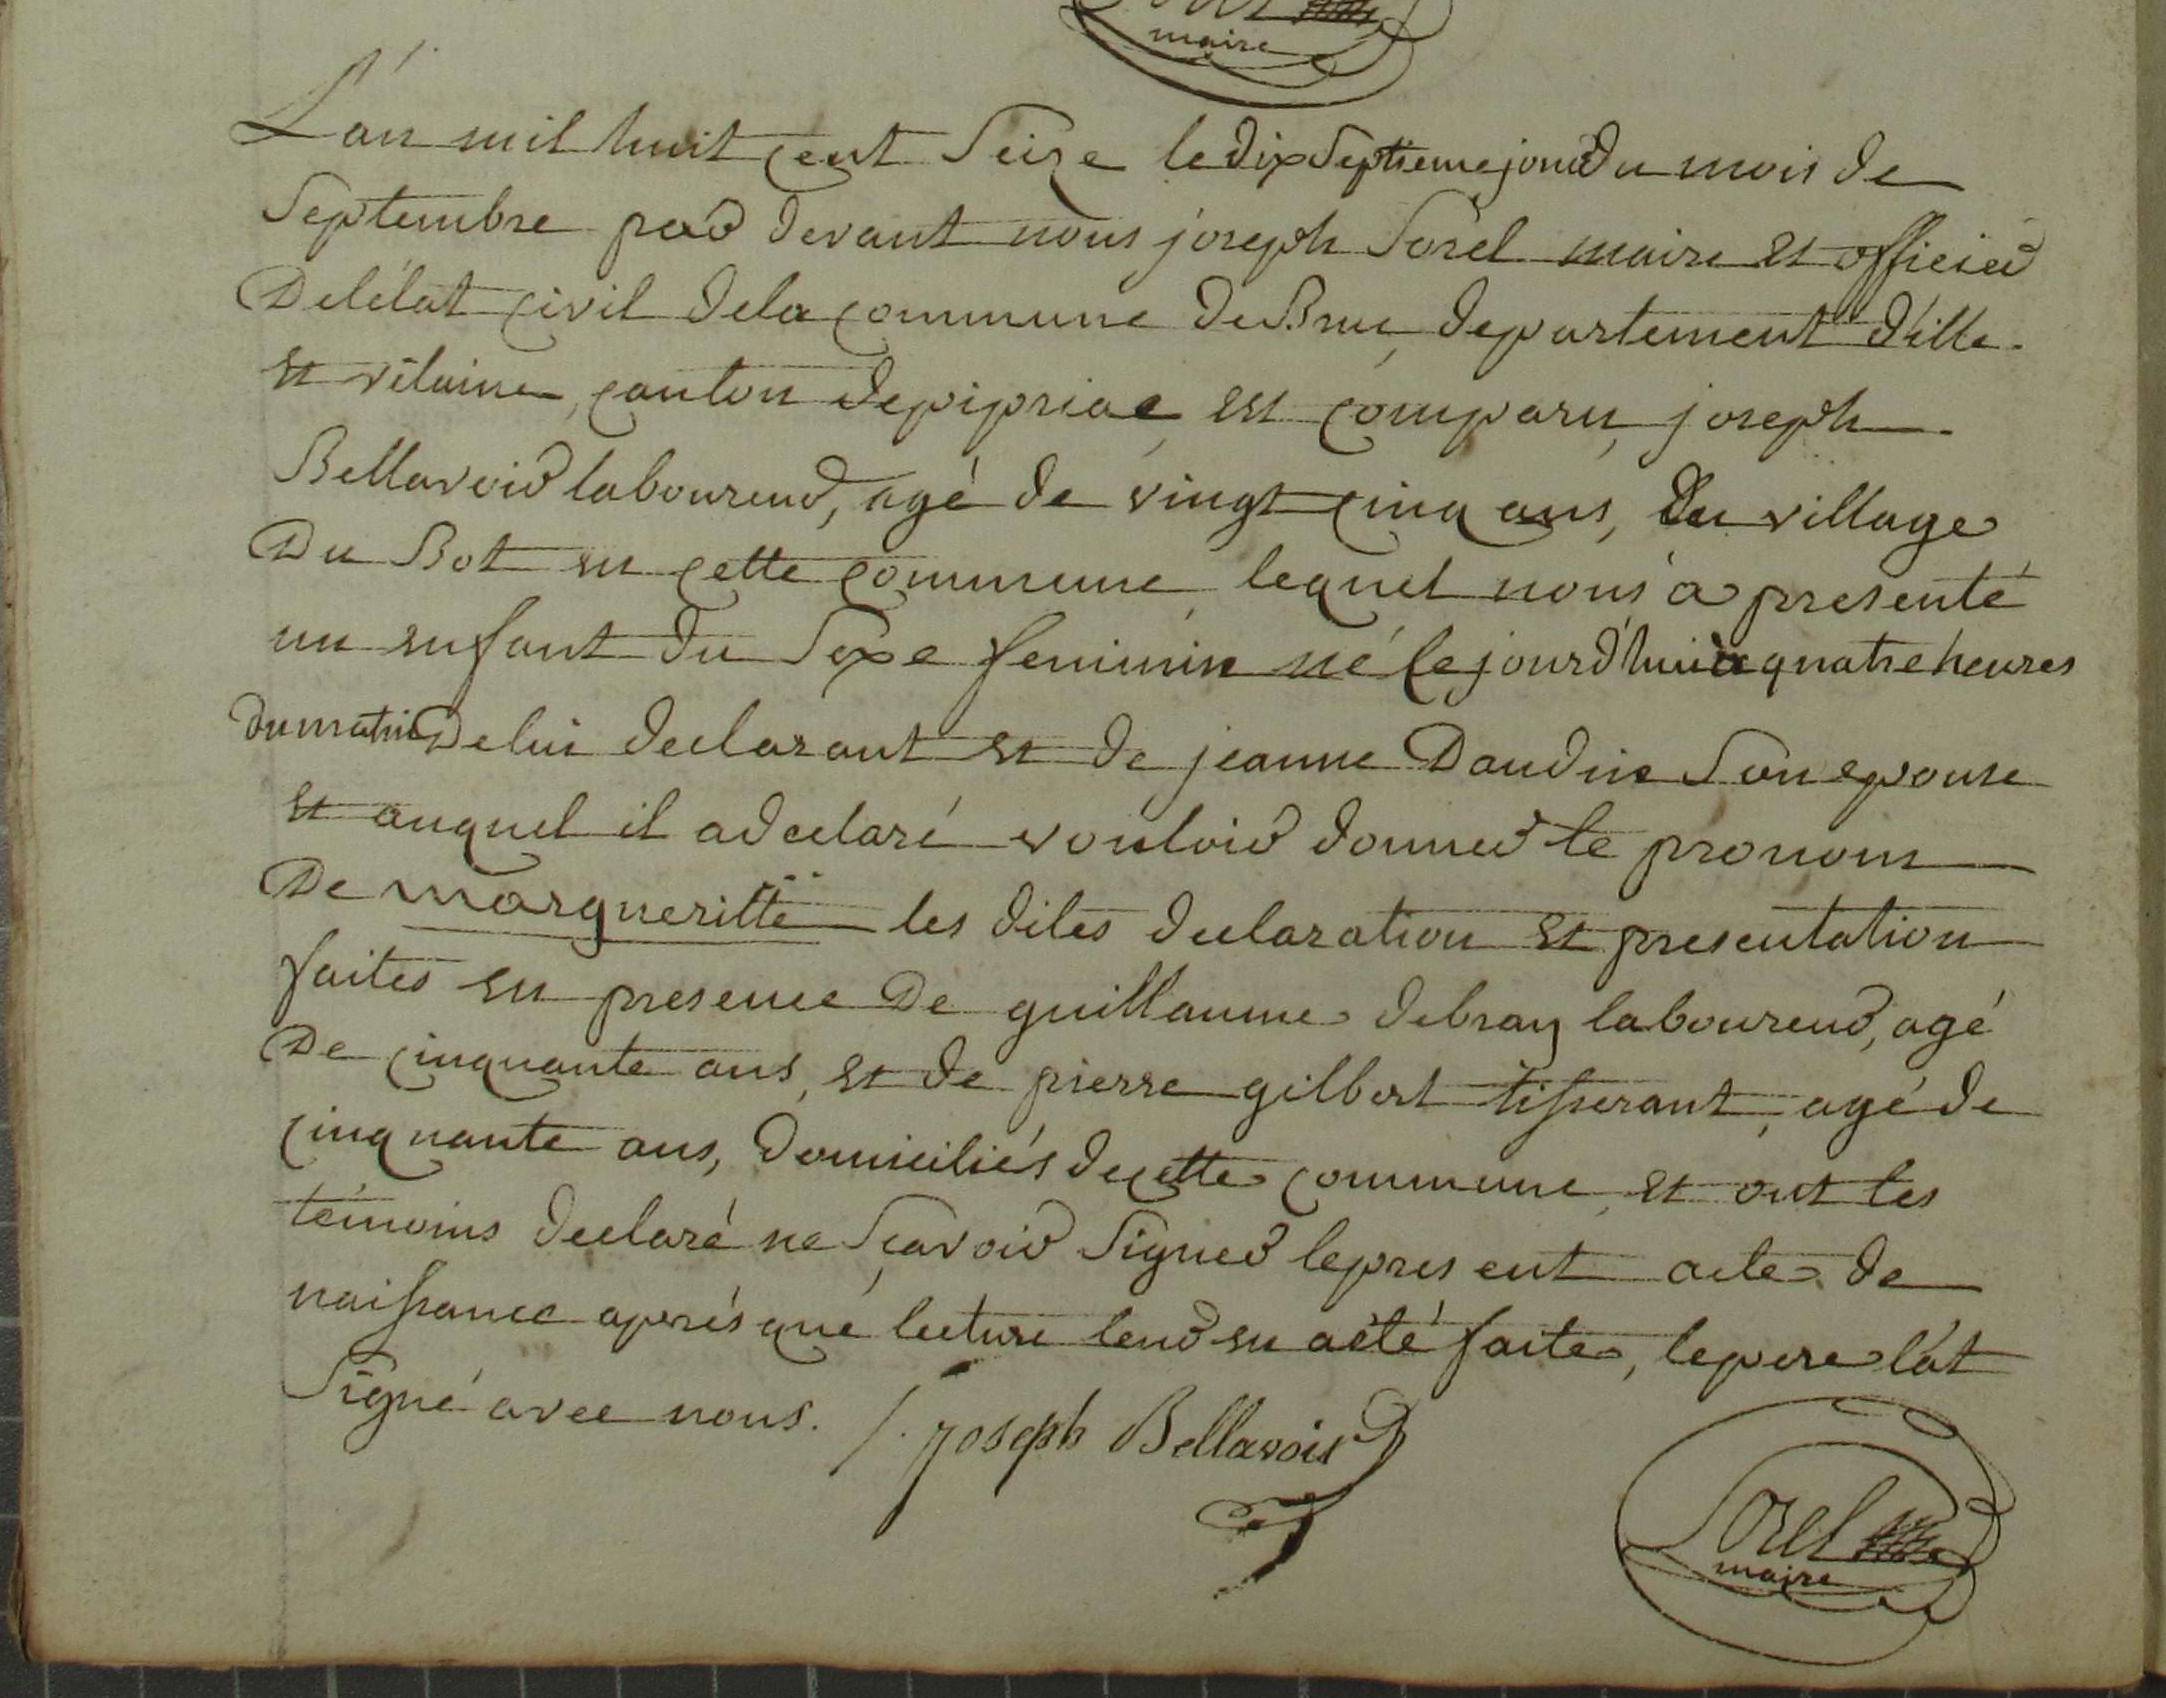 maire
L'an mil huit cent Seize le dix Septieme jour du mois de
Septembre par devant nous joseph Sorel maire et officier
De l'état civil de la commune de Bruc, departement d'ille
et vilaine, canton de pipriac est comparu, joseph
Bellavoir laboureur, agé de vingt cinq ans, du village
Du Bot en cette commune, lequel nous a presenté
un enfant du Sexe feminin né ce jourd'hui à quatre heures
du matin De lui declarant et de jeanne Daudin Son epouse
et auquel il a declaré vouloir donner le pronom
De margueritte les dites declaration et presentation
faites en presence De guillaume debray laboureur, agé
De cinquante ans, et de pierre gilbert tisserant, agé de
cinquante ans, domiciliés de cette commune, et ont les
témoins declaré ne Sçavoir Signer le present acte de
naissance aprés que lecture leur en a été faite, le pere l'at
Signé avec nous. joseph Bellavoir
Sorel
maire